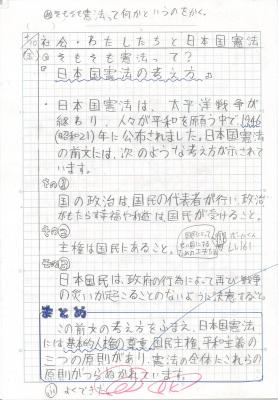 そもそも憲法って何かというのをかく。
社会・わたしたちと日本国憲法
そもそも憲法って?
日本国憲法の考え方。
・日本国憲法は、太平洋戦争が
終わり、人々が平和を願う中で、1946
(昭和21)年に公布されました。日本国憲法
の前文には、次のような考え方が示されて
います。
その①
国の政治は、国民の代表者が行い、政治
がもたらす幸福や利益は国民が受けること。
その②
主権は国民にあること。
その③
日本国民は、政府の行為によって再び戦争
の災いが起こることのないように決意すること。
まとめ
この前文の考え方をふまえ、日本国憲法
には基本的人権の尊重、国民主権、平和主義の
三つの原則があり、憲法の全体にこれらの
原則がつらぬかれています。
よくできた